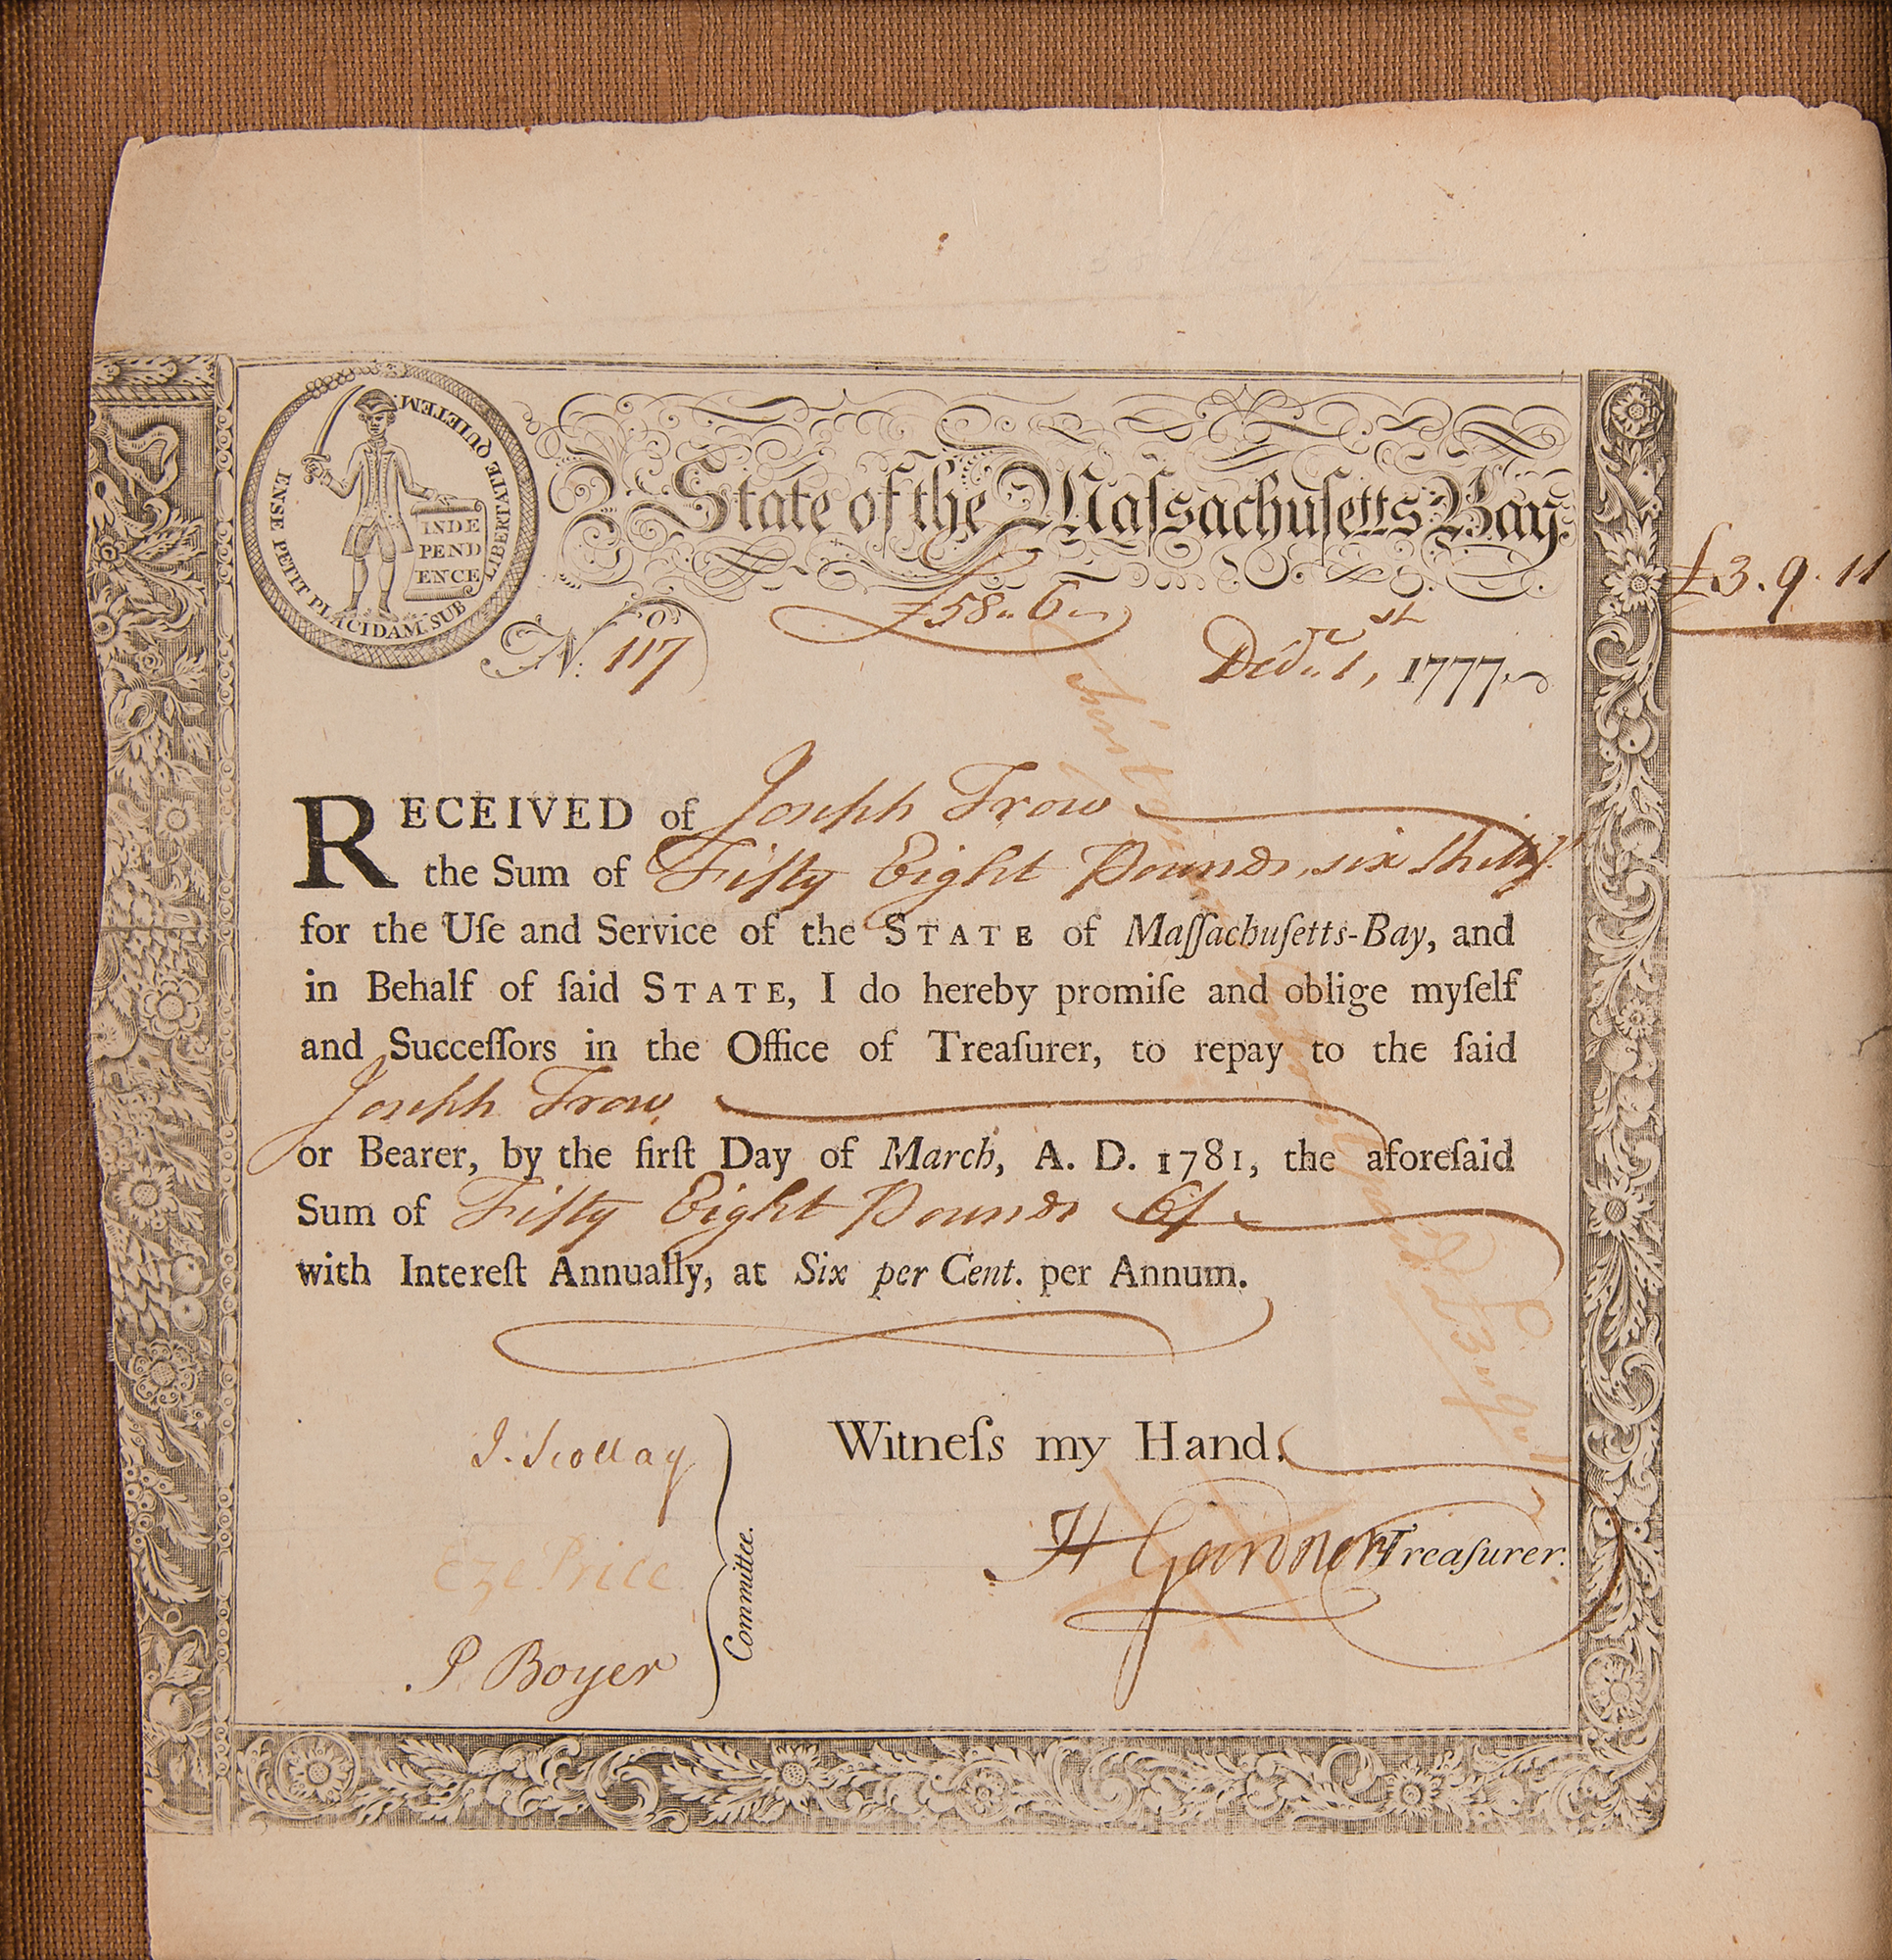 ENSE PETIT PLACIDAM. SUB LIBERTATE QUIETEM.
INDE
PEND
ENCE
State of the Maſsachuſetts Bay.
£3.9.11
£58.. 6..
No. 117
Decr. 1st, 1777.
RECEIVED of Joseph Trow
the Sum of Fifty Eight Pounds, six Shillgs.
for the Uſe and Service of the STATE of Maſſachuſetts-Bay, and
in Behalf of ſaid STATE, I do hereby promiſe and oblige myſelf
and Succeſſors in the Office of Treaſurer, to repay to the ſaid
Joseph Trow
or Bearer, by the firſt Day of March, A. D. 1781, the aforeſaid
Sum of Fifty Eight Pounds 6/
with Intereſt Annually, at Six per Cent. per Annum.
Witneſs my Hand.
J. Scollay
Eze Price
P. Boyer
Committee.
H Gardner Treaſurer.
First
paid